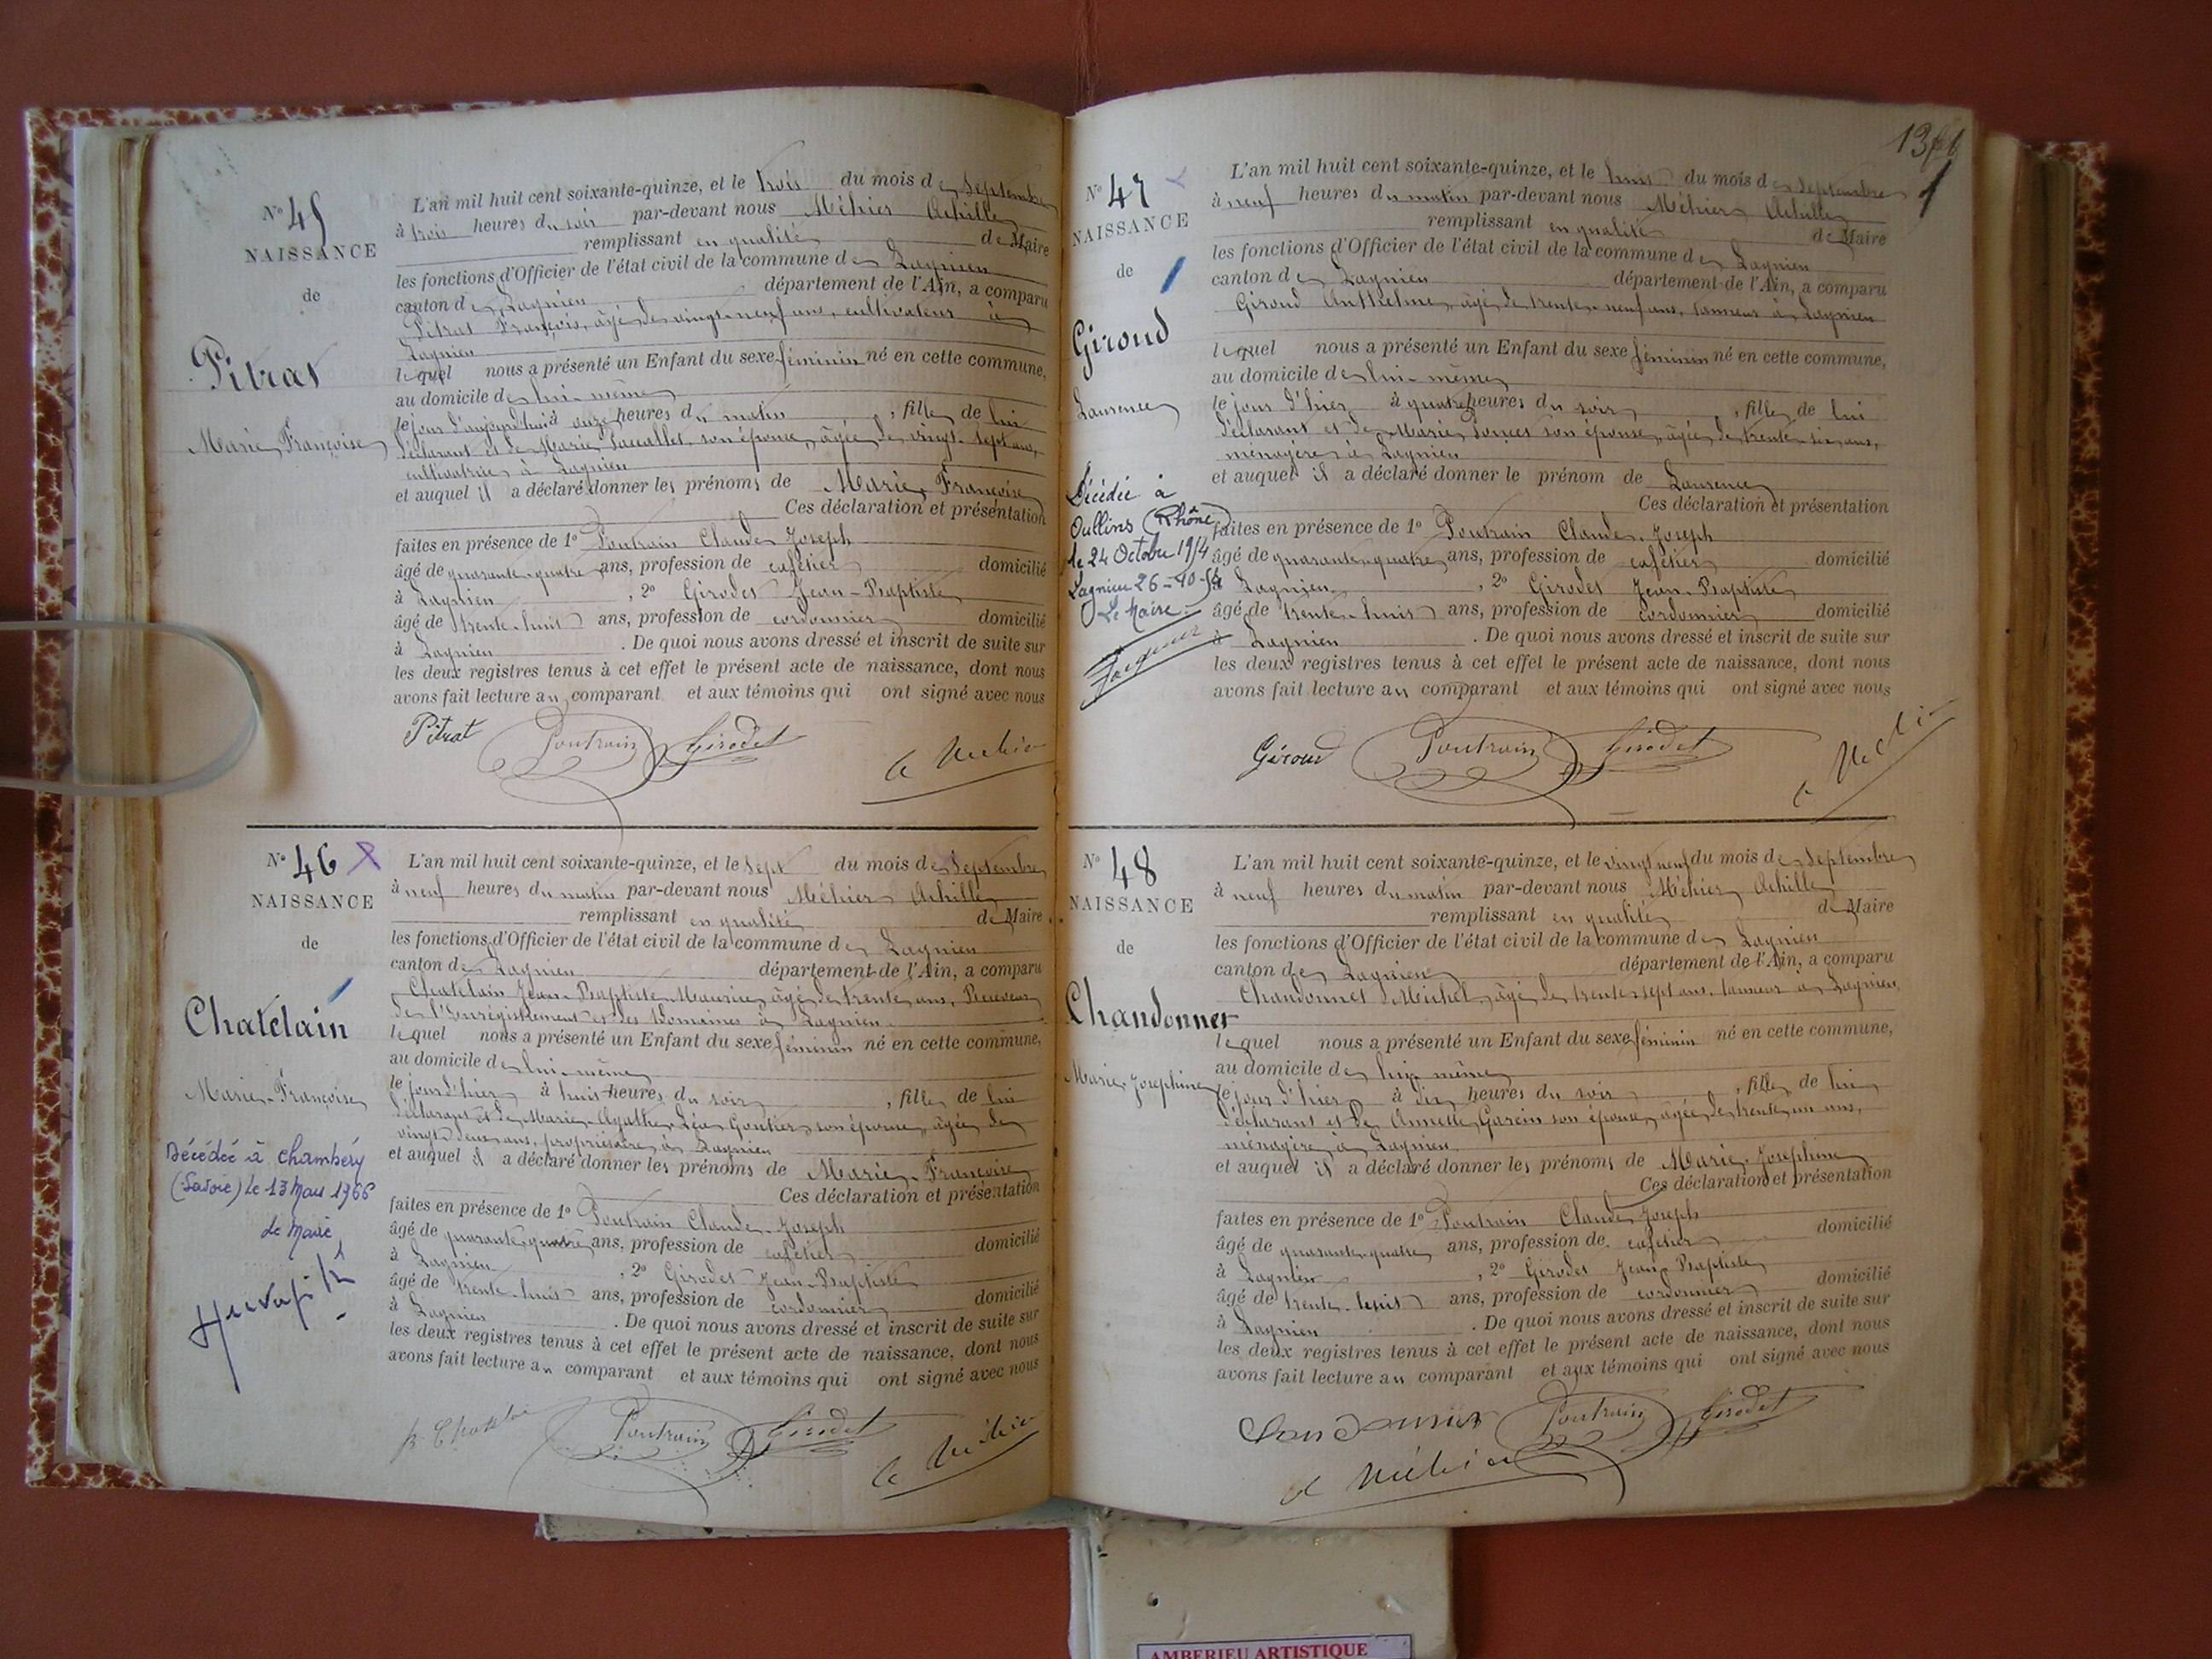 N° 45
NAISSANCE
de
Pitrat
Marie Françoise
L'an mil huit cent soixante-quinze, et le trois du mois de Septembre
à trois heures du soir par-devant nous Méhier Achille
remplissant en qualité de Maire
les fonctions d'Officier de l'état civil de la commune de Lagnieu
canton de Lagnieu département de l'Ain, a comparu
Pitrat François, âgé de vingt-neuf ans, cultivateur à
Lagnieu
lequel nous a présenté un Enfant du sexe féminin né en cette commune,
au domicile de lui-même
le jour d'aujourd'hui à onze heures du matin, fille de lui
déclarant et de Marie son épouse, âgée de vingt-sept ans,
cultivatrice à Lagnieu
et auquel il a déclaré donner les prénoms de Marie Françoise
Ces déclaration et présentation
faites en présence de 1° Poutrain Claude Joseph
âgé de quarante-quatre ans, profession de cafetier domicilié
à Lagnieu, 2° Girodet Jean-Baptiste
âgé de trente-huit ans, profession de cordonnier domicilié
à Lagnieu. De quoi nous avons dressé et inscrit de suite sur
les deux registres tenus à cet effet le présent acte de naissance, dont nous
avons fait lecture au comparant et aux témoins qui ont signé avec nous
Pitrat Poutrain Girodet A Méhier
N° 46
NAISSANCE
de
Chatelain
Marie-Françoise
Décédée à Chambéry
(Savoie) le 13 Mars 1966
Le Maire
L'an mil huit cent soixante-quinze, et le sept du mois de Septembre
à neuf heures du matin par-devant nous Méhier Achille
remplissant en qualité de Maire
les fonctions d'Officier de l'état civil de la commune de Lagnieu
canton de Lagnieu département de l'Ain, a comparu
Chatelain Jean-Baptiste Maurice, âgé de trente ans, Receveur
de l'Enregistrement et des Domaines à Lagnieu
lequel nous a présenté un Enfant du sexe féminin né en cette commune,
au domicile de lui-même
le jour d'hier à huit heures du soir, fille de lui
déclarant et de Marie-Agathe Léa Goutier son épouse, âgée de
vingt-deux ans, propriétaire à Lagnieu
et auquel il a déclaré donner les prénoms de Marie-Françoise
Ces déclaration et présentation
faites en présence de 1° Poutrain Claude-Joseph
âgé de quarante-quatre ans, profession de cafetier domicilié
à Lagnieu, 2° Girodet Jean-Baptiste
âgé de trente-huit ans, profession de cordonnier domicilié
à Lagnieu. De quoi nous avons dressé et inscrit de suite sur
les deux registres tenus à cet effet le présent acte de naissance, dont nous
avons fait lecture au comparant et aux témoins qui ont signé avec nous
Poutrain Girodet A Méhier
N° 47
NAISSANCE
de
Giroud
Laurence
Décédée à
Oullins (Rhône)
le 24 Octobre 1954
Lagnieu 26-10-54
Le Maire
L'an mil huit cent soixante-quinze, et le huit du mois de Septembre
à neuf heures du matin par-devant nous Méhier Achille
remplissant en qualité de Maire
les fonctions d'Officier de l'état civil de la commune de Lagnieu
canton de Lagnieu département de l'Ain, a comparu
Giroud Anthelme, âgé de trente-neuf ans, tanneur à Lagnieu
lequel nous a présenté un Enfant du sexe féminin né en cette commune,
au domicile de lui-même
le jour d'hier à quatre heures du soir, fille de lui
déclarant et de Marie son épouse, âgée de trente-six ans,
ménagère à Lagnieu
et auquel il a déclaré donner le prénom de Laurence
Ces déclaration et présentation
faites en présence de 1° Poutrain Claude-Joseph
âgé de quarante-quatre ans, profession de cafetier domicilié
à Lagnieu, 2° Girodet Jean-Baptiste
âgé de trente-huit ans, profession de cordonnier domicilié
à Lagnieu. De quoi nous avons dressé et inscrit de suite sur
les deux registres tenus à cet effet le présent acte de naissance, dont nous
avons fait lecture au comparant et aux témoins qui ont signé avec nous
Giroud Poutrain Girodet A Méhier
N° 48
NAISSANCE
de
Chandonnet
Marie-Joséphine
L'an mil huit cent soixante-quinze, et le vingt neuf du mois de Septembre
à neuf heures du matin par-devant nous Méhier Achille
remplissant en qualité de Maire
les fonctions d'Officier de l'état civil de la commune de Lagnieu
canton de Lagnieu département de l'Ain, a comparu
Chandonnet Michel, âgé de trente-sept ans, tanneur à Lagnieu
lequel nous a présenté un Enfant du sexe féminin né en cette commune,
au domicile de lui-même
le jour d'hier à dix heures du soir, fille de lui
déclarant et de Annette Garcin son épouse, âgée de trente-un ans,
ménagère à Lagnieu
et auquel il a déclaré donner les prénoms de Marie-Joséphine
Ces déclaration et présentation
faites en présence de 1° Poutrain Claude Joseph
âgé de quarante-quatre ans, profession de cafetier domicilié
à Lagnieu, 2° Girodet Jean-Baptiste
âgé de trente-huit ans, profession de cordonnier domicilié
à Lagnieu. De quoi nous avons dressé et inscrit de suite sur
les deux registres tenus à cet effet le présent acte de naissance, dont nous
avons fait lecture au comparant et aux témoins qui ont signé avec nous
Poutrain Girodet
A Méhier
AMBERIEU ARTISTIQUE